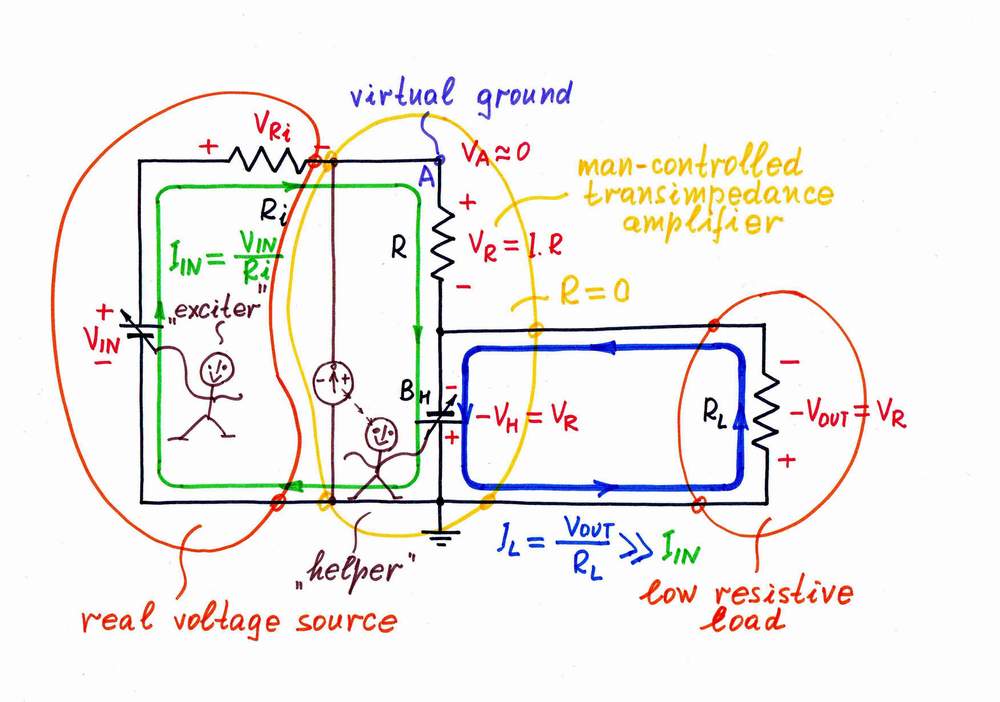 virtual ground
VRi
+
−
VA≈0
A
man-controlled
transimpedance
amplifier
+
Ri
R
VR = I.R
IIN = VIN
Ri
−
R = 0
„exciter”
+
VIN
−
− +
BH
−
+
−VH = VR
RL
−
−VOUT = VR
+
IL = VOUT
RL
>> IIN
„helper”
real voltage source
low resistive
load